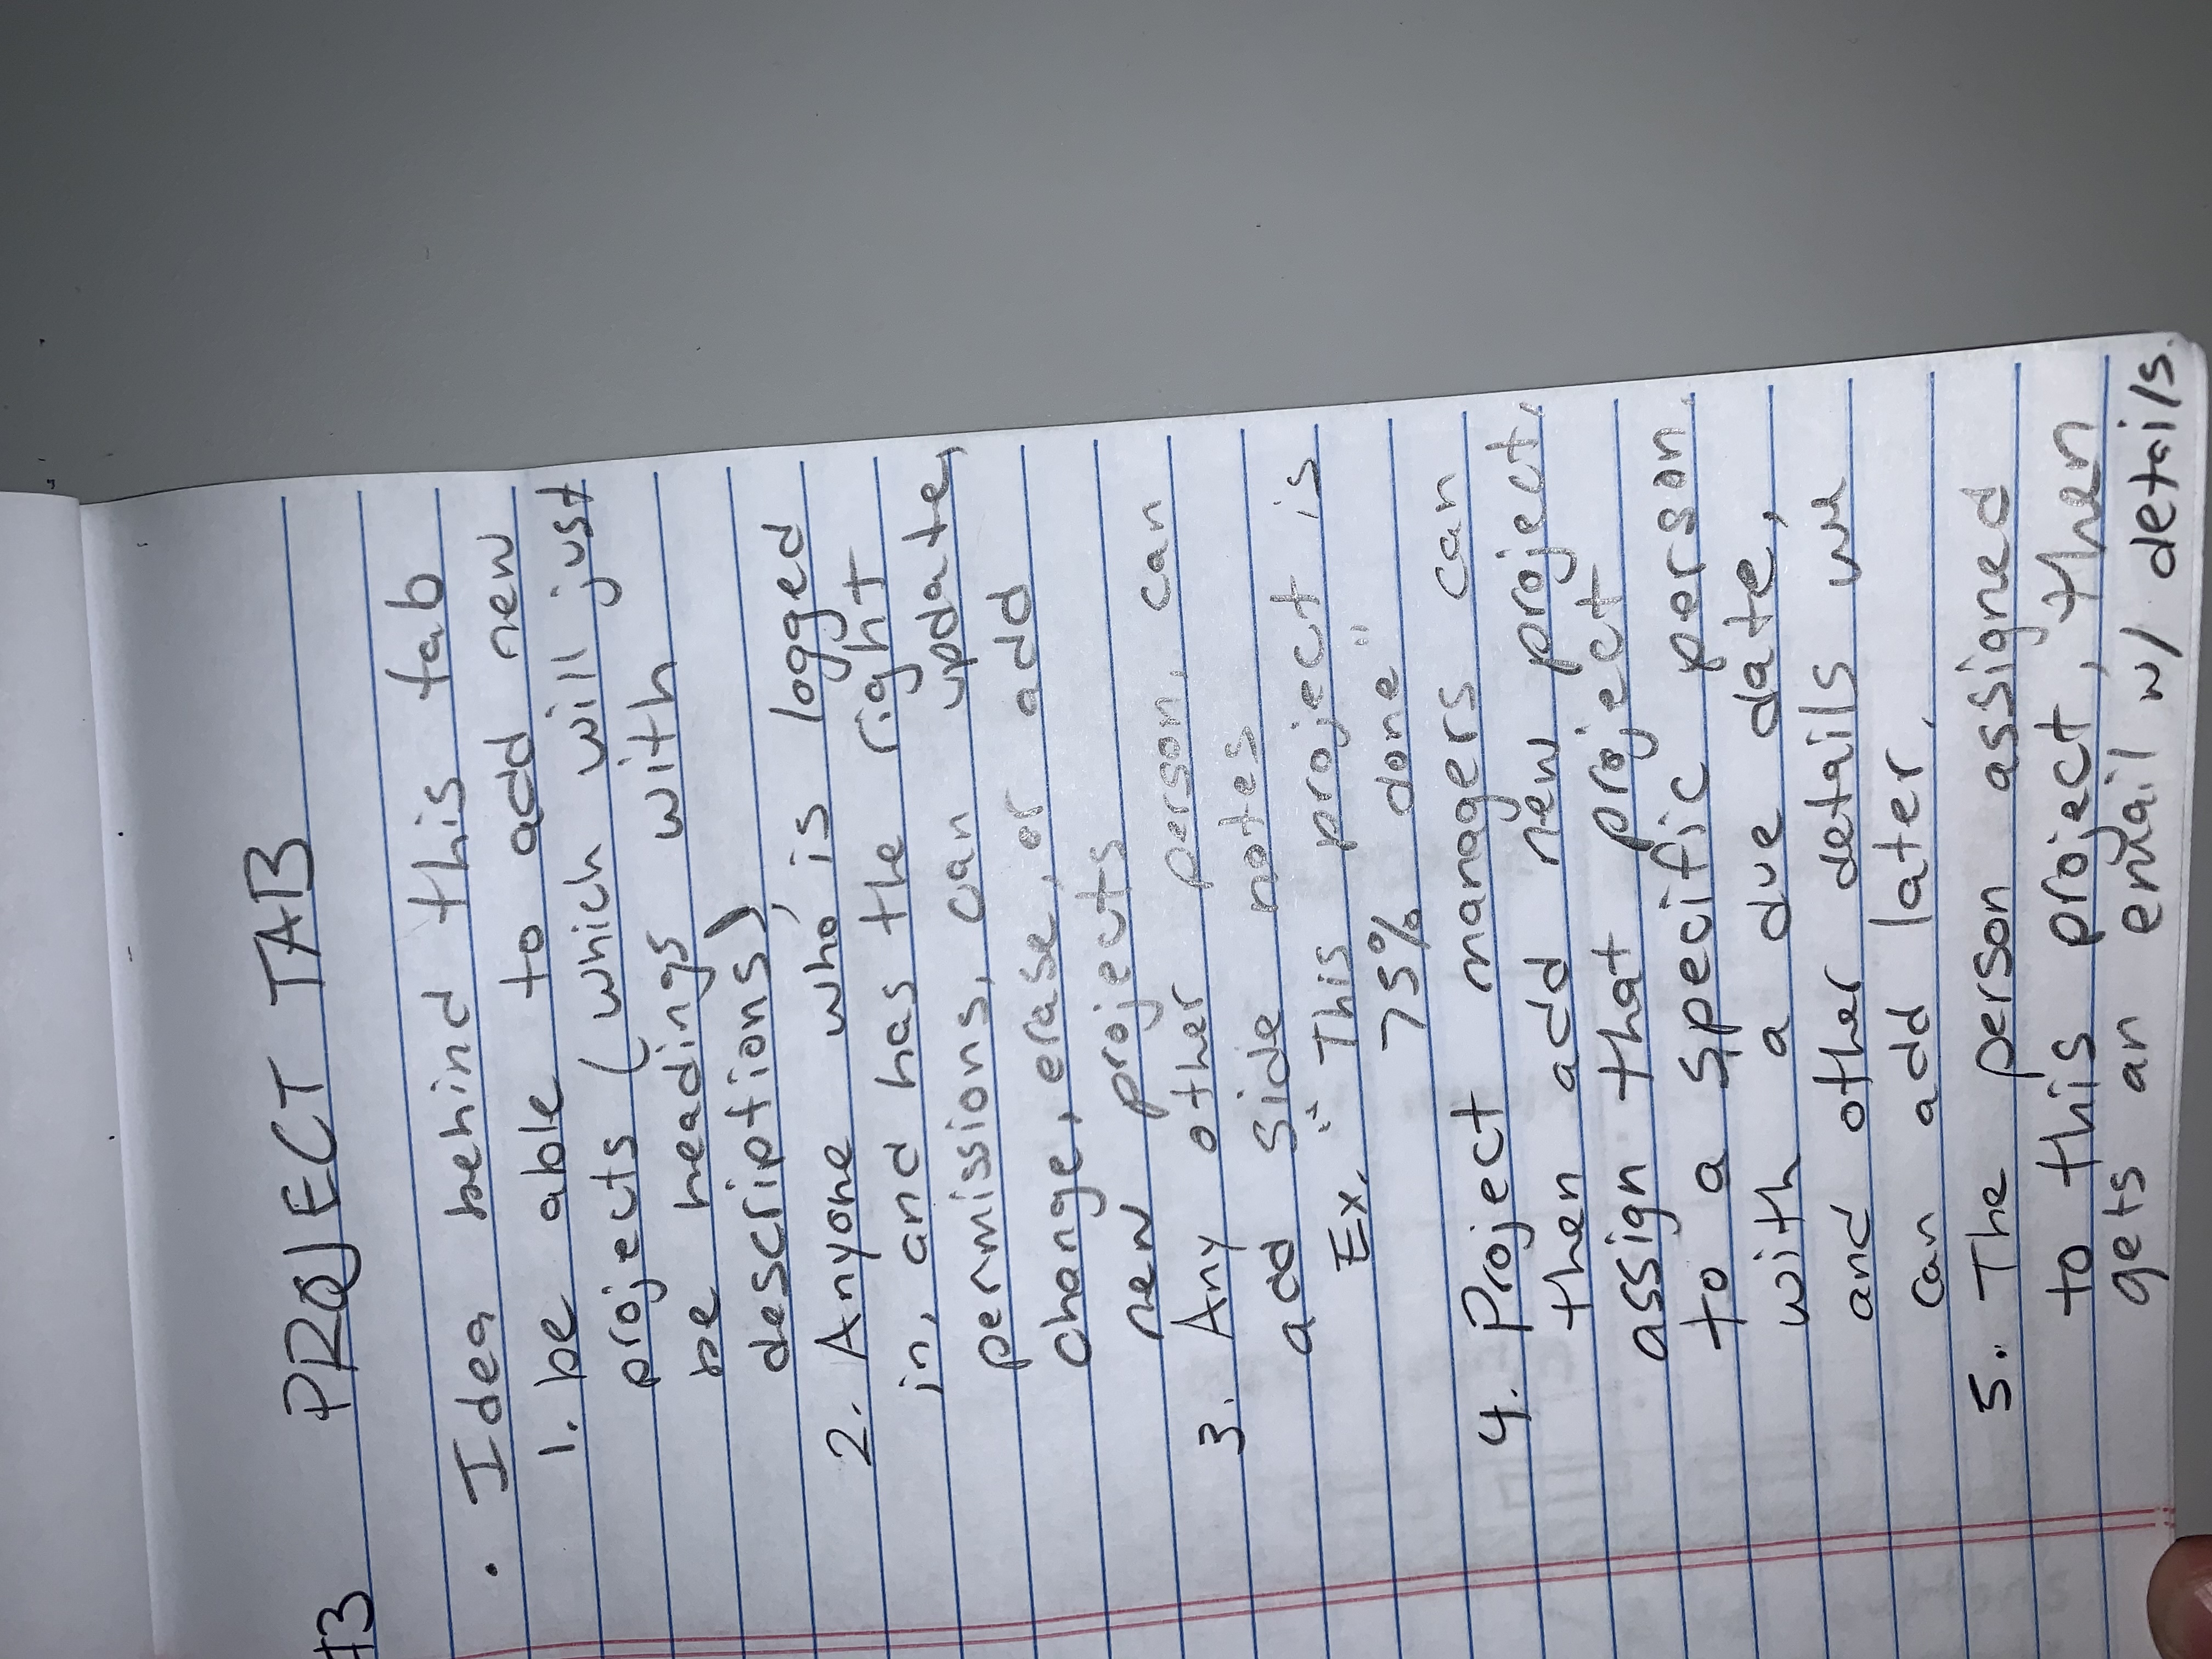 #3 PROJECT TAB
• Idea behind this tab
1. be able to add new
projects (which will just
be headings with
descriptions)
2. Anyone who is logged
in, and has the right
permissions, can update,
change, erase, or add
new projects
3. Any other person, can
add side notes
Ex. "This project is
75% done"
4. Project managers can
then add new project,
assign that project
to a specific person,
with a due date,
and other details we
can add later.
5. The person assigned
to this project, then
gets an email w/ details.